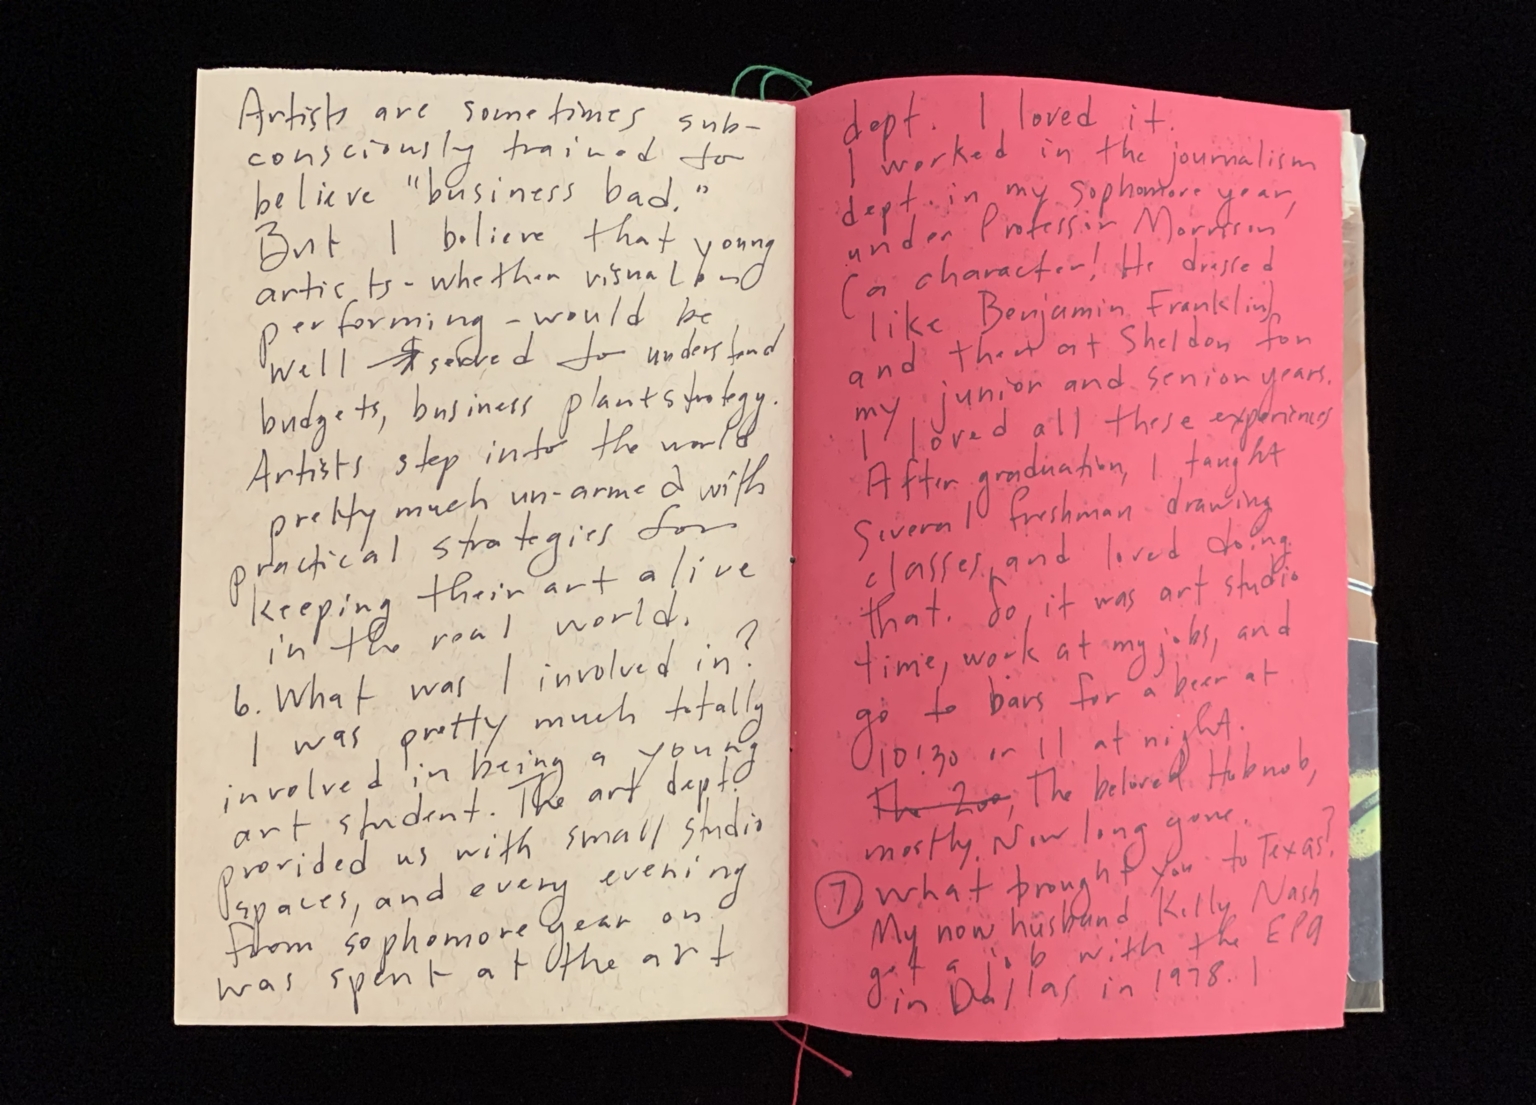 Artists are sometimes sub-
consciously trained to
believe "business bad."
But I believe that young
artists - whether visual or
performing - would be
well served to understand
budgets, business plan + strategy.
Artists step into the world
pretty much un-armed with
practical strategies for
keeping their art alive
in the real world.
6. What was I involved in?
I was pretty much totally
involved in being a young
art student. The art dept.
provided us with small studio
spaces, and every evening
from sophomore year on
was spent at the art
dept. I loved it.
I worked in the journalism
dept. in my sophomore year,
under Professor Morrison
(a character! He dressed
like Benjamin Franklin)
and then at Sheldon for
my junior and senior years.
I loved all these experiences
After graduation, I taught
several freshman drawing
classes, and loved doing
that. So, it was art studio
time, work at my jobs, and
go to bars for a beer at
10:30 or 11 at night.
The Zoo, The beloved Hobnob,
mostly. Now long gone.
7. What brought you to Texas?
My now husband Kelly Nash
got a job with the EPA
in Dallas in 1978. I